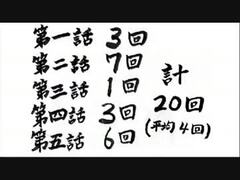 第一話 3回
第二話 7回
第三話 1回
第四話 3回
第五話 6回
計
20回
(平均4回)